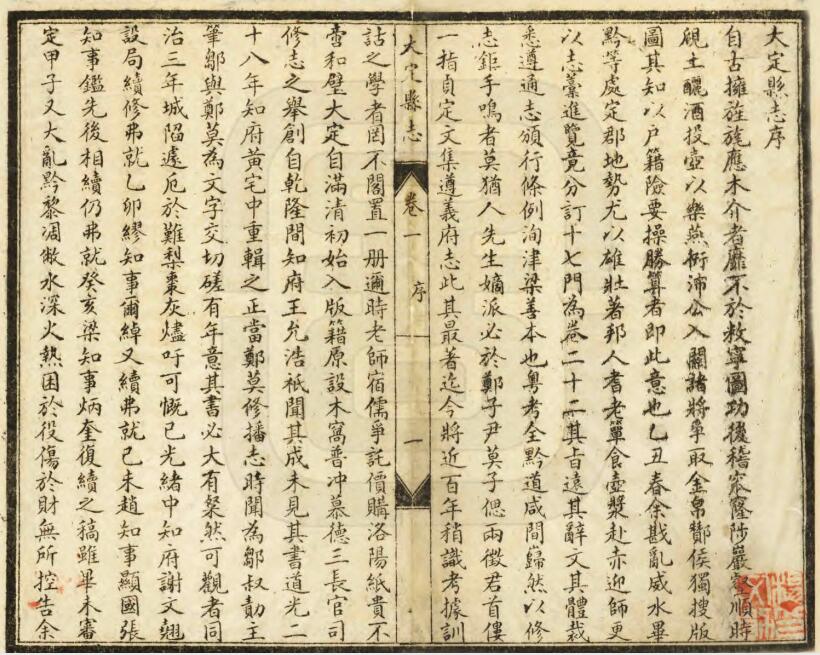 大定縣志序
自古擁旌旄應木介者靡不於敉寧圖功後稽冞窿陟巖壑順時
硯土釃酒投壺以樂燕衎沛公入關諸將爭取金帛酇侯獨搜版
圖其知以戶籍險要操勝算者即此意也乙丑春余戡亂威水畢
黔等處定郡地勢尤以雄壯著邦人耆老簞食壺漿赴赤迎師更
以志藁進覽竟分訂十七門為卷二十二其旨遠其辭文其體裁
悉遵通志頒行條例洵津梁善本也粵考全黔道咸間巋然以修
志鉅手鳴者莫猶人先生嫡派必於鄭子尹莫子偲兩徵君首僂
一指貞定文集遵義府志此其最著迄今將近百年稍識考據訓
大定縣志
卷一
序
一
詁之學者罔不閣置一册邇時老師宿儒爭託價購洛陽紙貴不
啻和璧大定自滿清初始入版籍原設木窩普冲慕德三長官司
修志之舉創自乾隆間知府王允浩祇聞其成未見其書道光二
十八年知府黃宅中重輯之正當鄭莫修播志時聞為鄒叔勣主
筆鄒與鄭莫為文字交切磋有年意其書必大有粲然可觀者同
治三年城陷遽厄於難梨棗灰燼吁可慨已光緒中知府謝文翹
設局續修弗就乙卯繆知事爾綽又續弗就己未趙知事顯國張
知事鑑先後相續仍弗就癸亥梁知事炳奎復續之稿雖畢未審
定甲子又大亂黔黎凋敝水深火熱困於役傷於財無所控告余